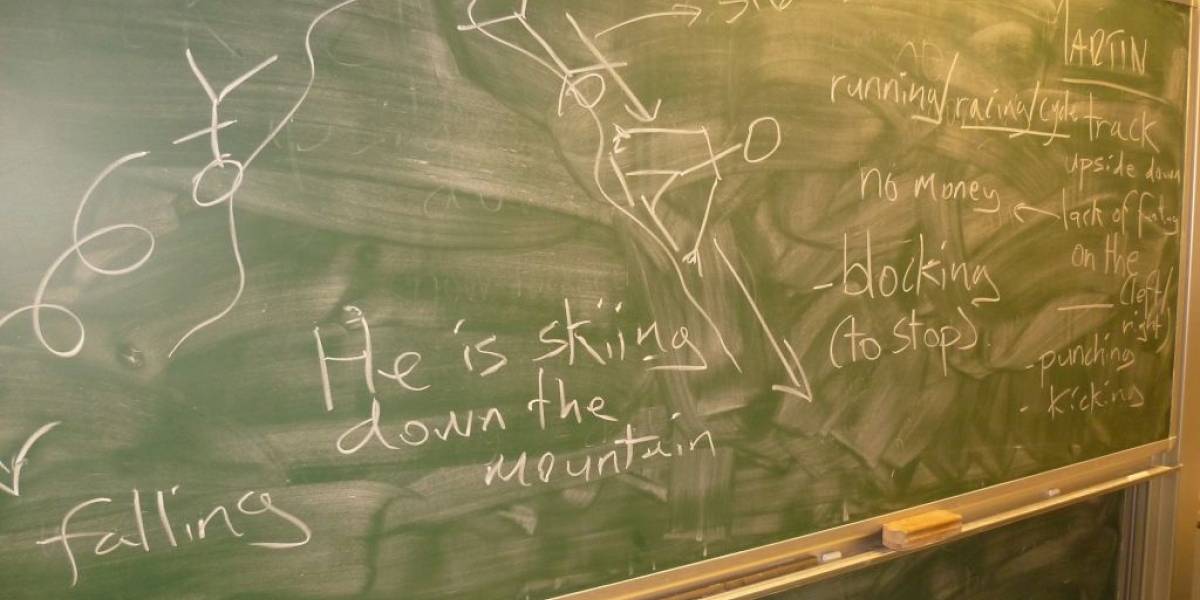 He is skiing
down the
mountain
falling
running/racing/cycle track
no money
- blocking
(to stop)
upside down
lack of
on the
(left/
right)
- punching
- kicking